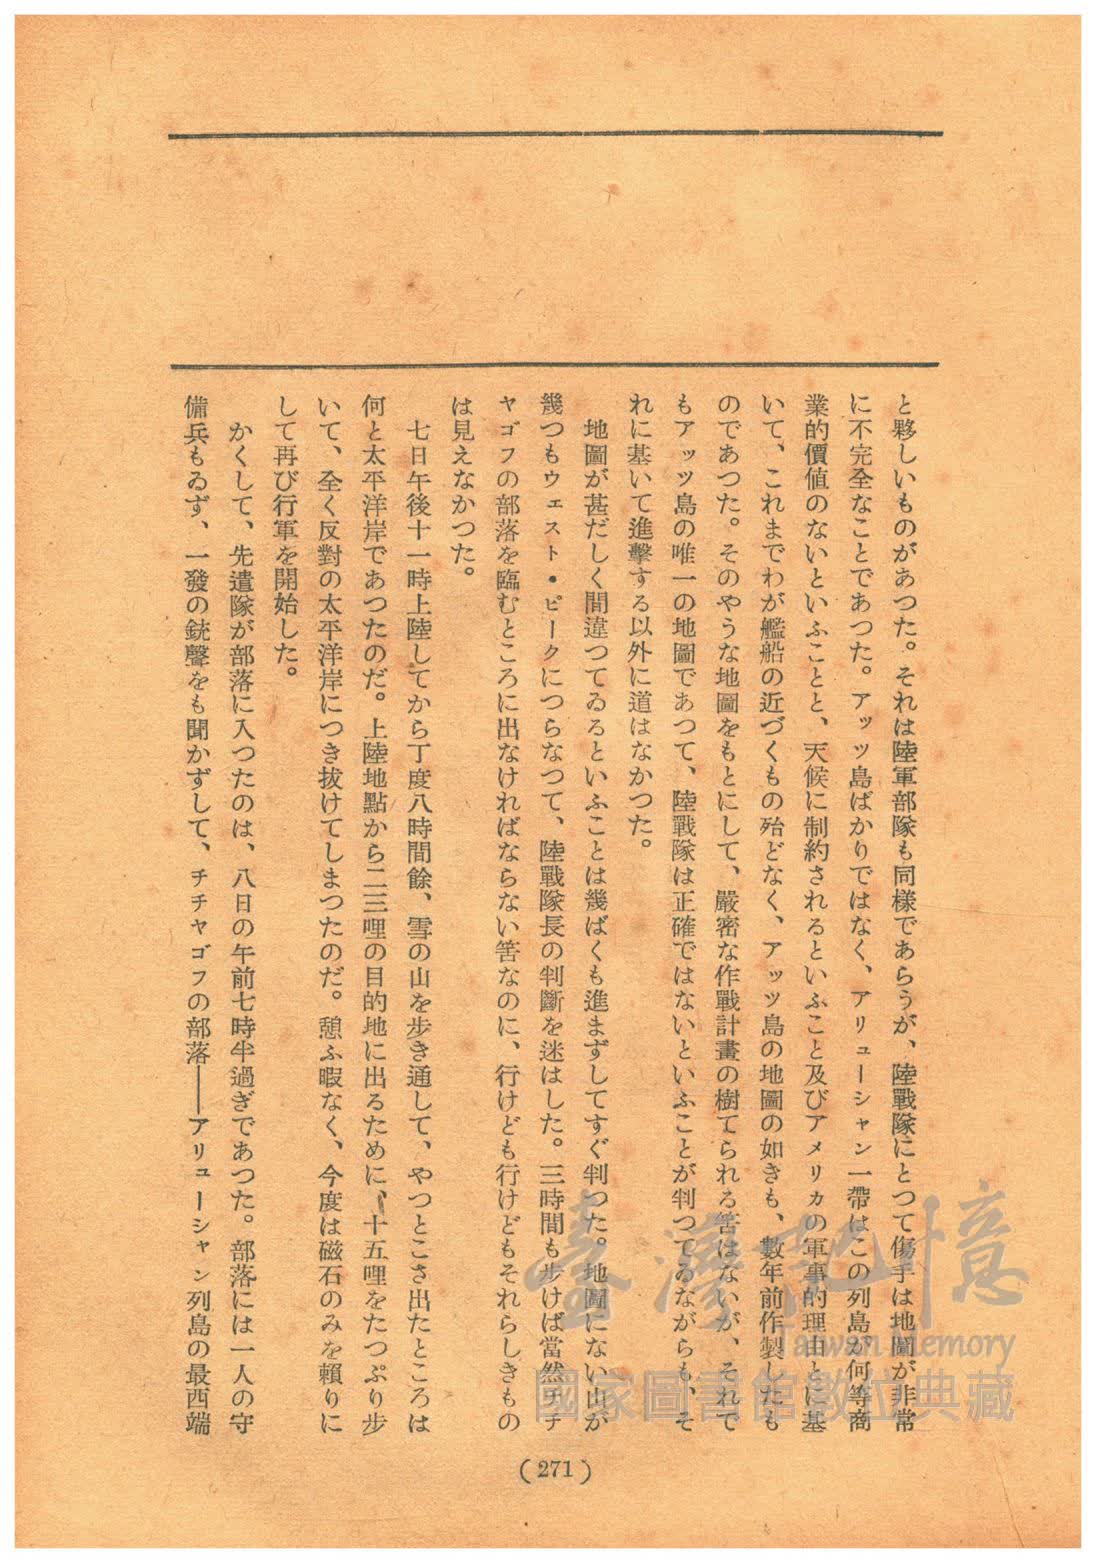 と夥しいものがあつた。それは陸軍部隊も同樣であらうが、陸戰隊にとつて傷手は地圖が非常
に不完全なことであつた。アッツ島ばかりではなく、アリューシャン一帶はこの列島が何等商
業的價値のないといふことと、天候に制約されるといふこと及びアメリカの軍事的理由とに基
いて、これまでわが艦船の近づくもの殆どなく、アッツ島の地圖の如きも、數年前作製したも
のであつた。そのやうな地圖をもとにして、嚴密な作戰計畫の樹てられる筈はないが、それで
もアッツ島の唯一の地圖であつて、陸戰隊は正確ではないといふことが判つてゐながらも、そ
れに基いて進擊する以外に道はなかつた。
地圖が甚だしく間違つてゐるといふことは幾ばくも進まずしてすぐ判つた。地圖にない山が
幾つもウェスト・ピークにつらなつて、陸戰隊長の判斷を迷はした。三時間も步けば當然チチ
ャゴフの部落を臨むところに出なければならない筈なのに、行けども行けどもそれらしきもの
は見えなかつた。
七日午後十一時上陸してから丁度八時間餘、雪の山を步き通して、やつとこさ出たところは
何と太平洋岸であつたのだ。上陸地點から二三哩の目的地に出るために、十五哩をたつぷり步
いて、全く反對の太平洋岸につき拔けてしまつたのだ。憩ふ暇なく、今度は磁石のみを賴りに
して再び行軍を開始した。
かくして、先遣隊が部落に入つたのは、八日の午前七時半過ぎであつた。部落には一人の守
備兵もゐず、一發の銃聲をも聞かずして、チチャゴフの部落――アリューシャン列島の最西端
(271)
臺灣記憶
Taiwan Memory
國家圖書館數位典藏